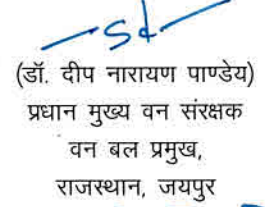 Sd
(डॉ. दीप नारायण पाण्डेय)
प्रधान मुख्य वन संरक्षक
वन बल प्रमुख,
राजस्थान, जयपुर